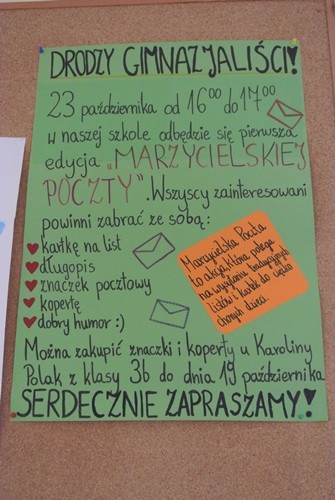 DRODZY GIMNAZJALIŚCI!
23 października od 16⁰⁰ do 17⁰⁰
w naszej szkole odbędzie się pierwsza
edycja „MARZYCIELSKIEJ
POCZTY". Wszyscy zainteresowani
powinni zabrać ze sobą:
♥ kartkę na list
♥ długopis
♥ znaczek pocztowy
♥ kopertę
♥ dobry humor :)
Marzycielska Poczta
to akcja, która polega
na wysyłaniu tradycyjnych
listów i kartek do ciężko
chorych dzieci.
Można zakupić znaczki i koperty u Karoliny
Polak z klasy 3b do dnia 19 października
SERDECZNIE ZAPRASZAMY!